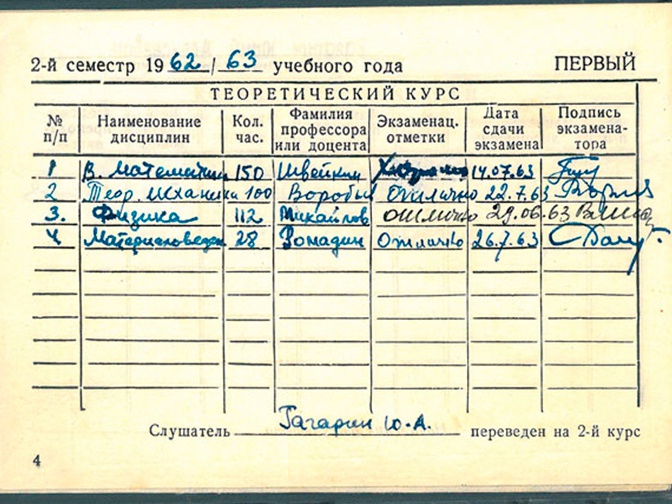 2-й семестр 1962/63 учебного года ПЕРВЫЙ
ТЕОРЕТИЧЕСКИЙ КУРС
№ п/п Наименование дисциплин Кол. час. Фамилия профессора или доцента Экзаменац. отметки Дата сдачи экзамена Подпись экзамена- тора
1 В. Математика 150 Швейкин 14.07.63
2 Теор. механика 100 Воробьев Отлично 22.7.63
3. Физика 112 Михайлов отлично 29.06.63
4 Материаловеден 28 Ромадин Отлично 26.7.63
Слушатель Гагарин Ю.А. переведен на 2-й курс
4